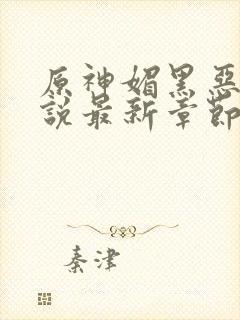 原神媚黑惡
說最新章節
秦津